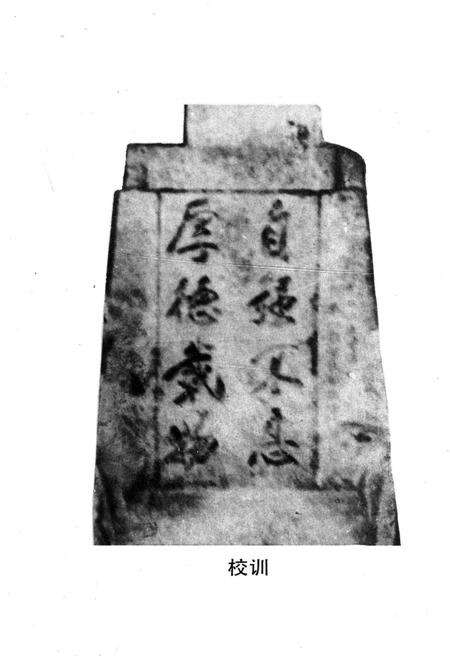 自强不息
厚德载物
校训